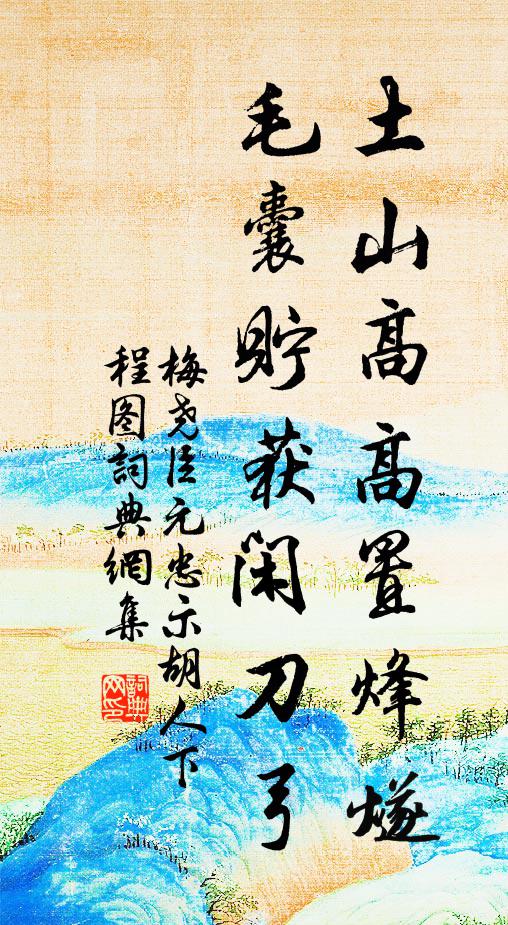 土山高高置烽燧
毛囊貯获閑刀弓
梅尧臣元忠示胡人下
程图詞典網集
詞典网印